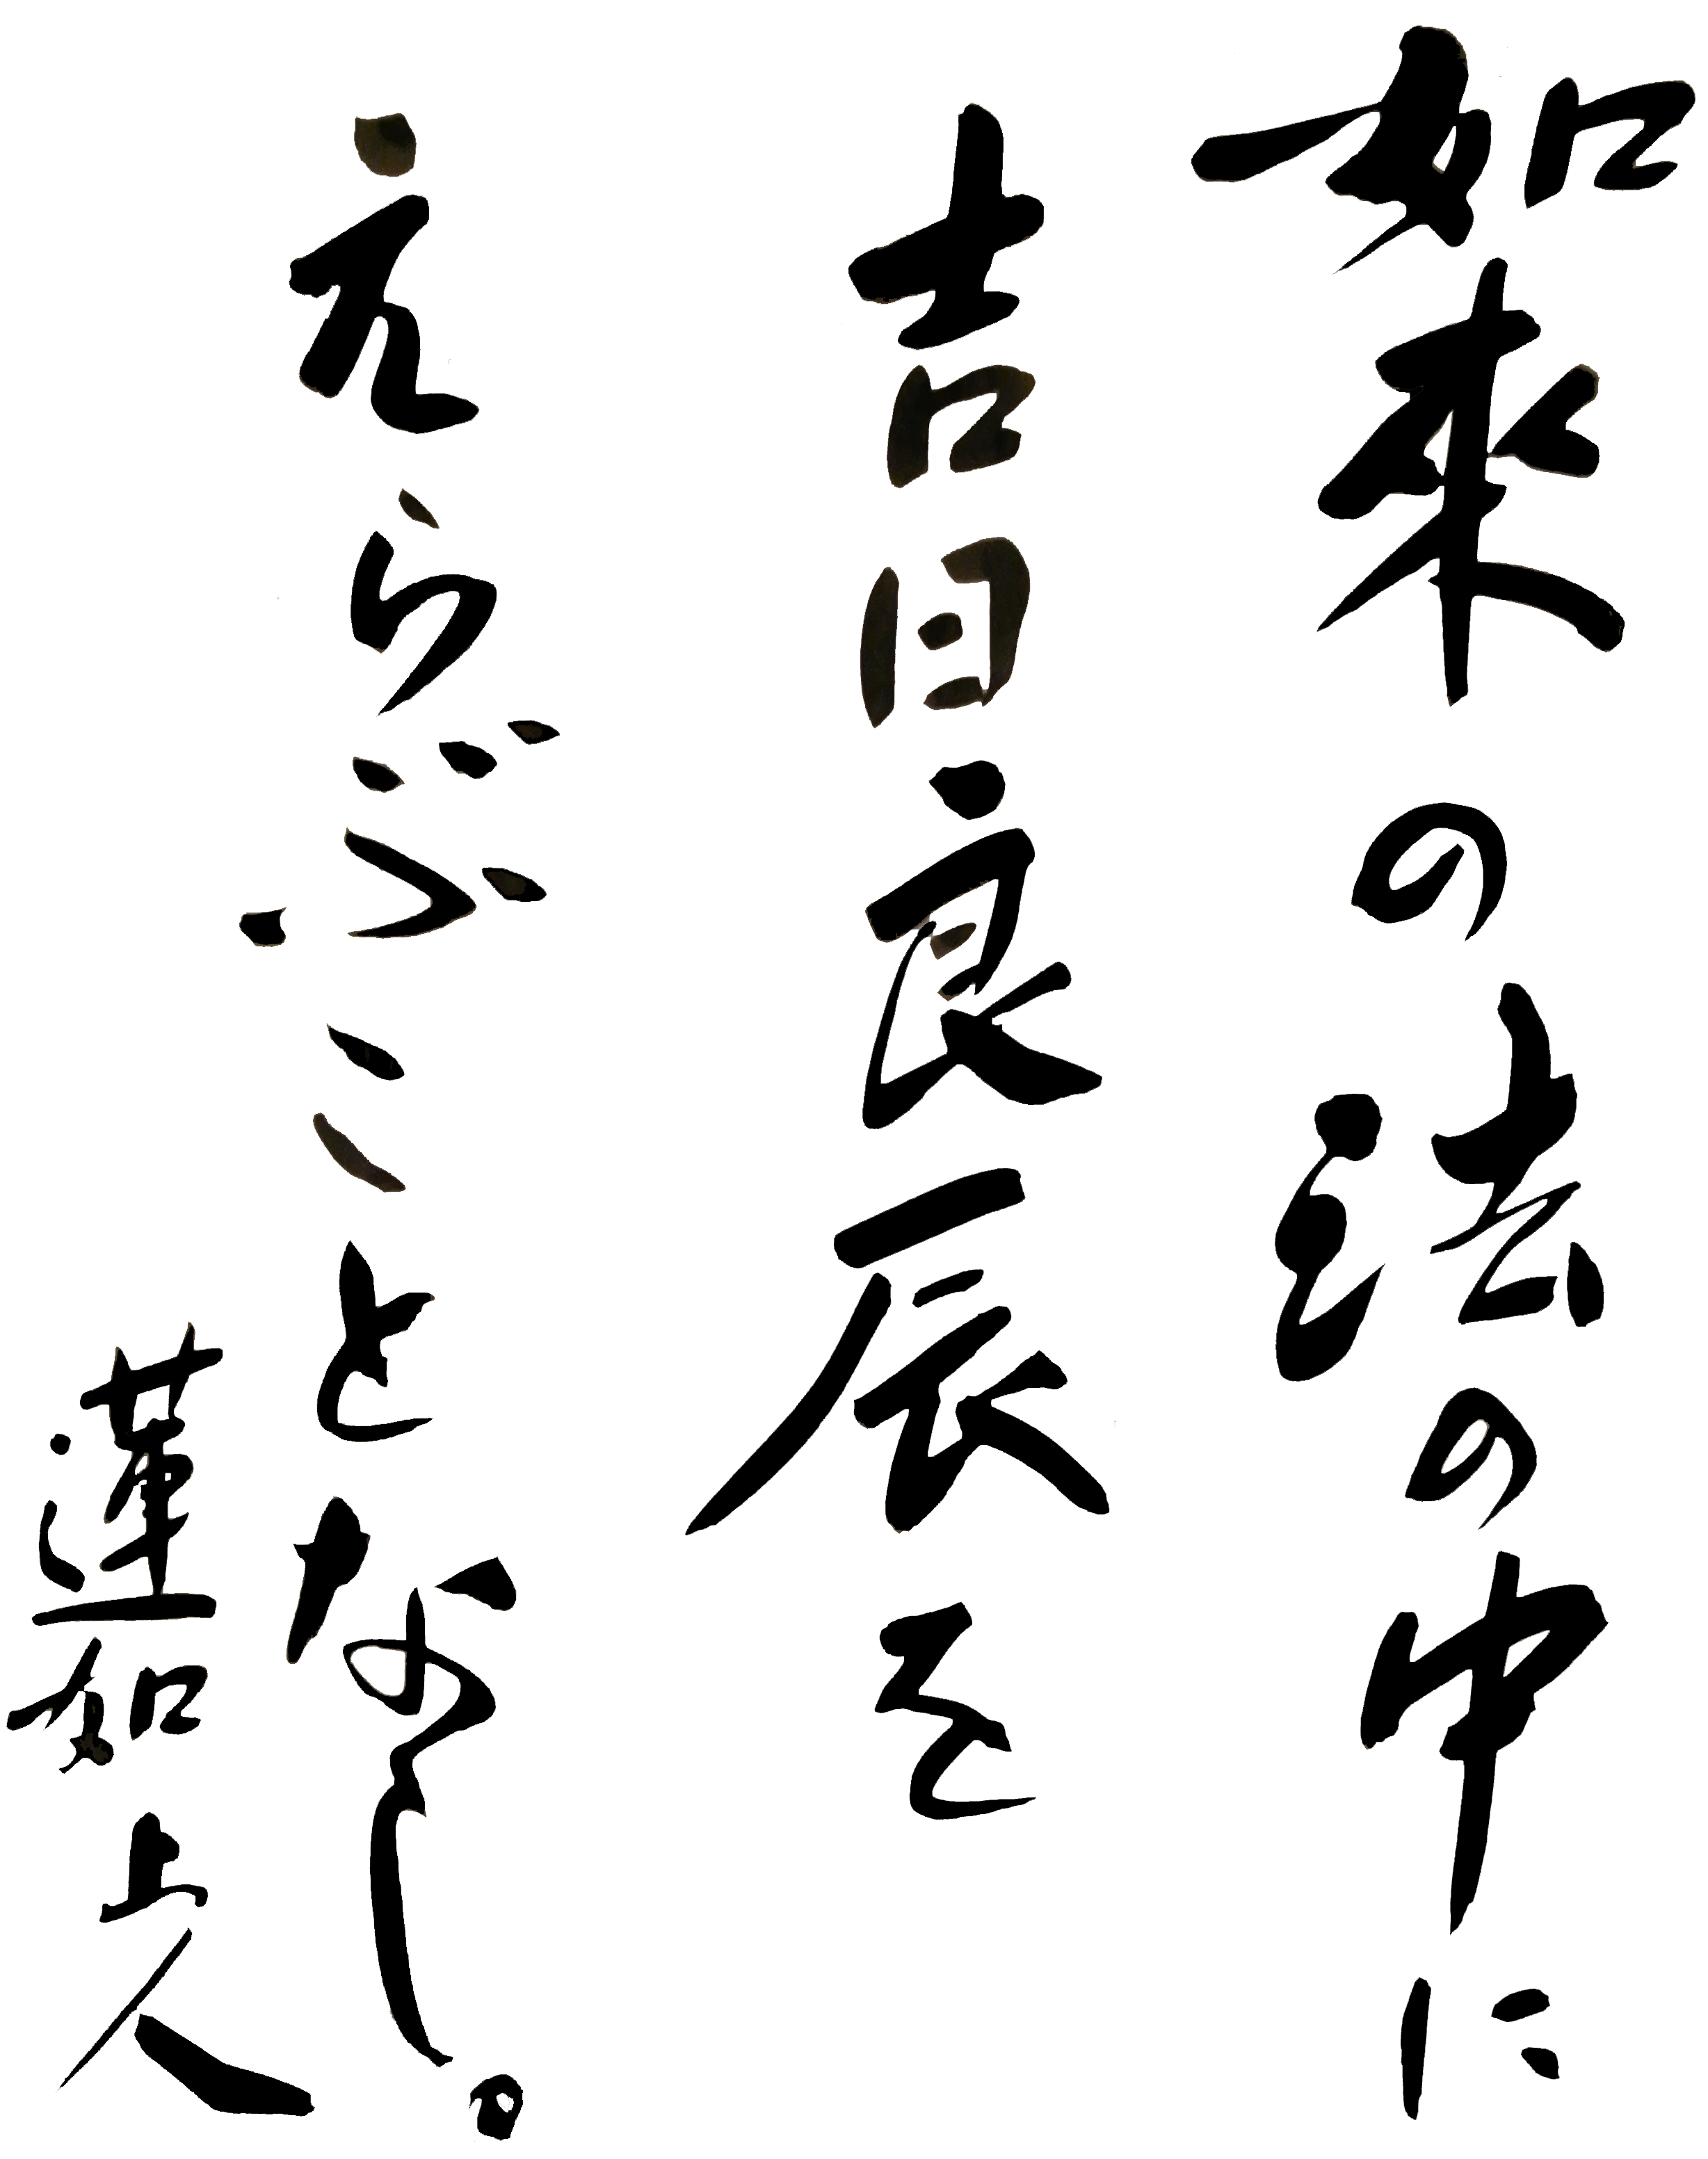 如来の法の中に
吉日良辰を
えらぶことなし。
蓮如上人